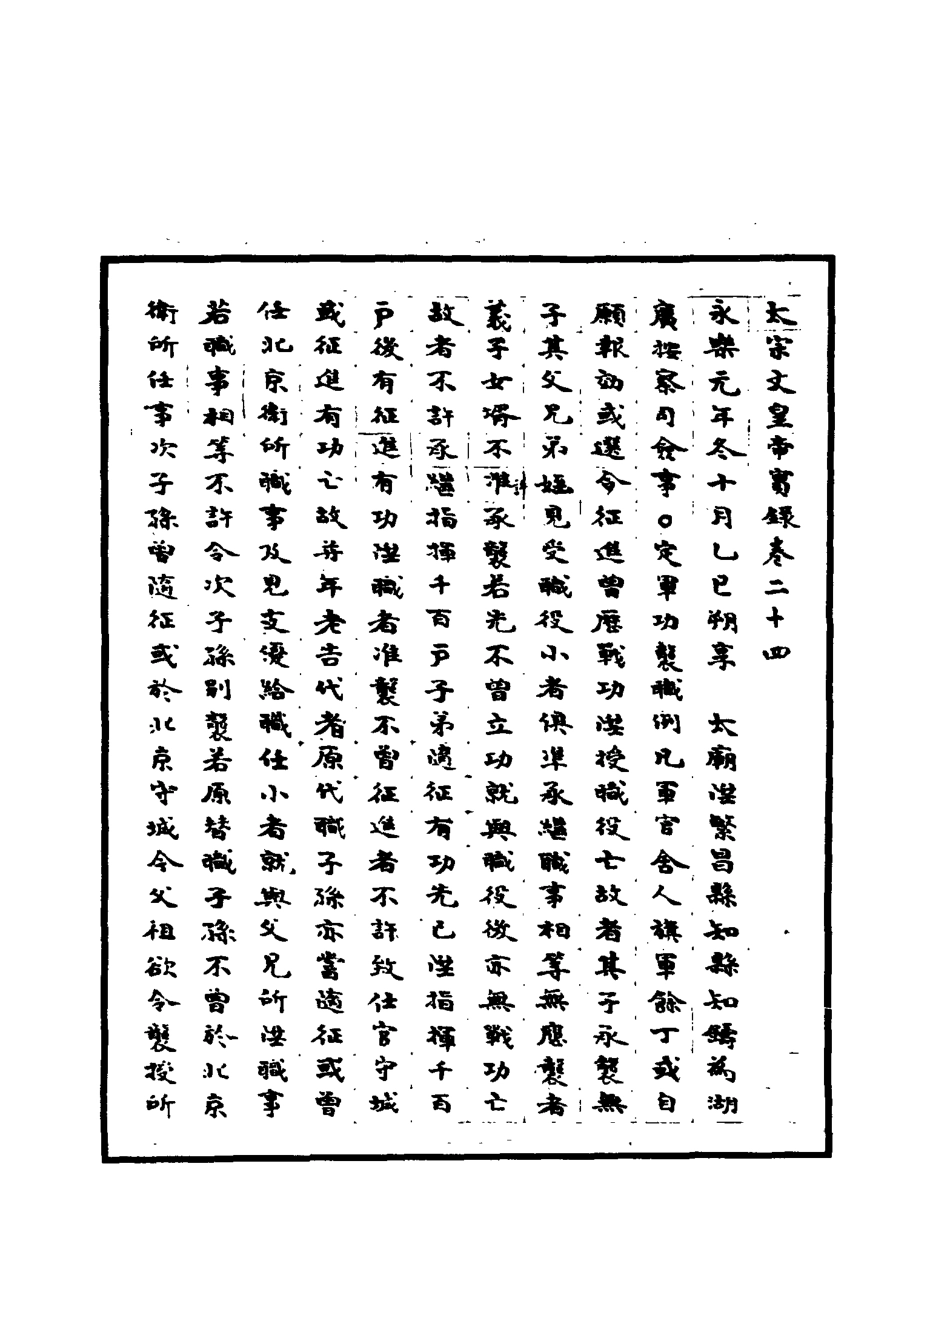 太宗文皇帝實錄卷二十四
永樂元年冬十月乙巳朔享　太廟陞繁昌縣知縣知鑄為湖
廣按察司僉事〇定軍功襲職例凡軍官舍人旗軍餘丁或自
願報効或選令征進曾歷戰功陞授職役亡故者其子承襲無
子其父兄弟姪見受職役小者俱準承繼職事相等無應襲者
義子女壻不准承襲若先不曾立功就與職役後亦無戰功亡
故者不許承繼指揮千百戶子弟隨征有功先已陞指揮千百
戶後有征進有功陞職者准襲不曾征進者不許致仕官守城
或征進有功亡故并年老告代者原代職子孫亦當隨征或曾
任北京衛所職事及見支優給職任小者就與父兄所陞職事
若職事相等不許令次子孫別襲若原替職子孫不曾於北京
衛所任事次子孫曾隨征或於北京守城令父祖欲令襲授所